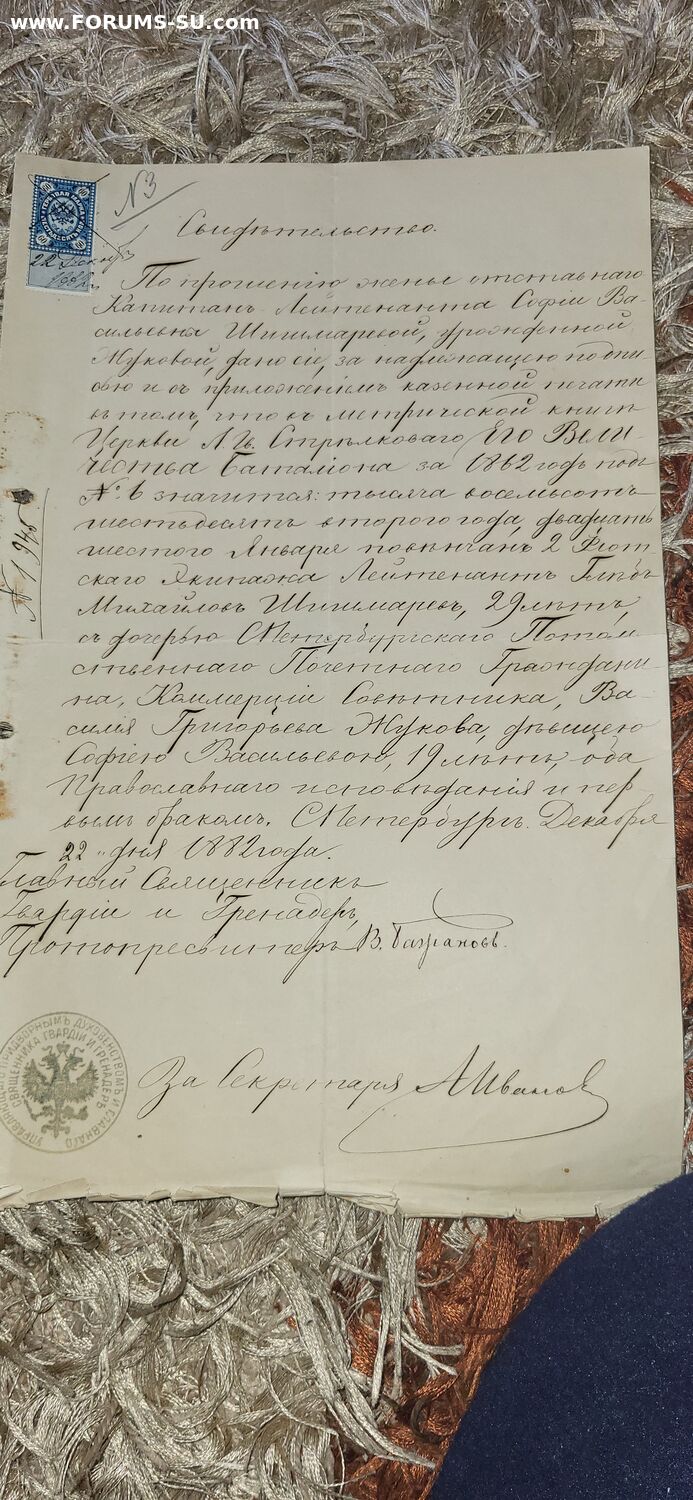 www.FORUMS-SU.com
№3
60 60
60 60
22 Декабр
1882
Свидѣтельство.
По прошенію жены отставнаго
Капитанъ-Лейтенанта Софіи Ва-
сильевны Шишмаревой, урожденной
Жуковой, дано сіе, за надлежащею подпи-
сью и съ приложеніемъ казенной печати
въ томъ, что въ метрической книгѣ
Церкви Л. Гв. Стрѣлковаго Его Вели-
чества баталіона за 1862 годъ подъ
№ 6 значится: тысяча восемьсотъ
шестьдесятъ второго года, двадцать
шестого Января повѣнчанъ 2 Флот-
скаго Экипажа Лейтенантъ Глѣбъ
Михайловъ Шишмаревъ, 29 лѣтъ,
съ дочерью СПетербургскаго Потом-
ственнаго Почетнаго Граждани-
на, Коммерціи Совѣтника, Ва-
силія Григорьева Жукова, дѣвицею
Софіею Васильевою, 19 лѣтъ, оба
Православнаго исповѣданія и пер-
вымъ бракомъ. СПетербургъ. Декабря
22 дня 1882 года.
№ 1946
Главный Священникъ
Гвардіи и Гренадеръ,
Протопресвитеръ В. Бажановъ.
УПРАВЛЯЮЩАГО ПРИДВОРНЫМЪ ДУХОВЕНСТВОМЪ И ГЛАВНАГО
СВЯЩЕННИКА ГВАРДІИ И ГРЕНАДЕРЪ
За Секретаря АИванов